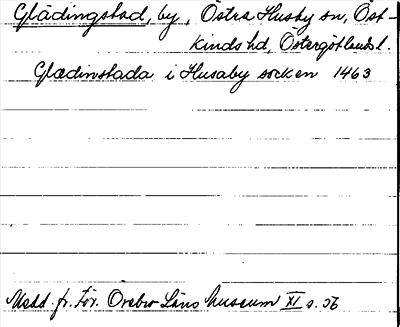 Glädingstad, by, Östra Husby sn, Öst-
kinds hd, Östergötlands l.
Glædinstada i Husaby socken 1463
Medd. fr. För. Örebro Läns museum XI s. 56